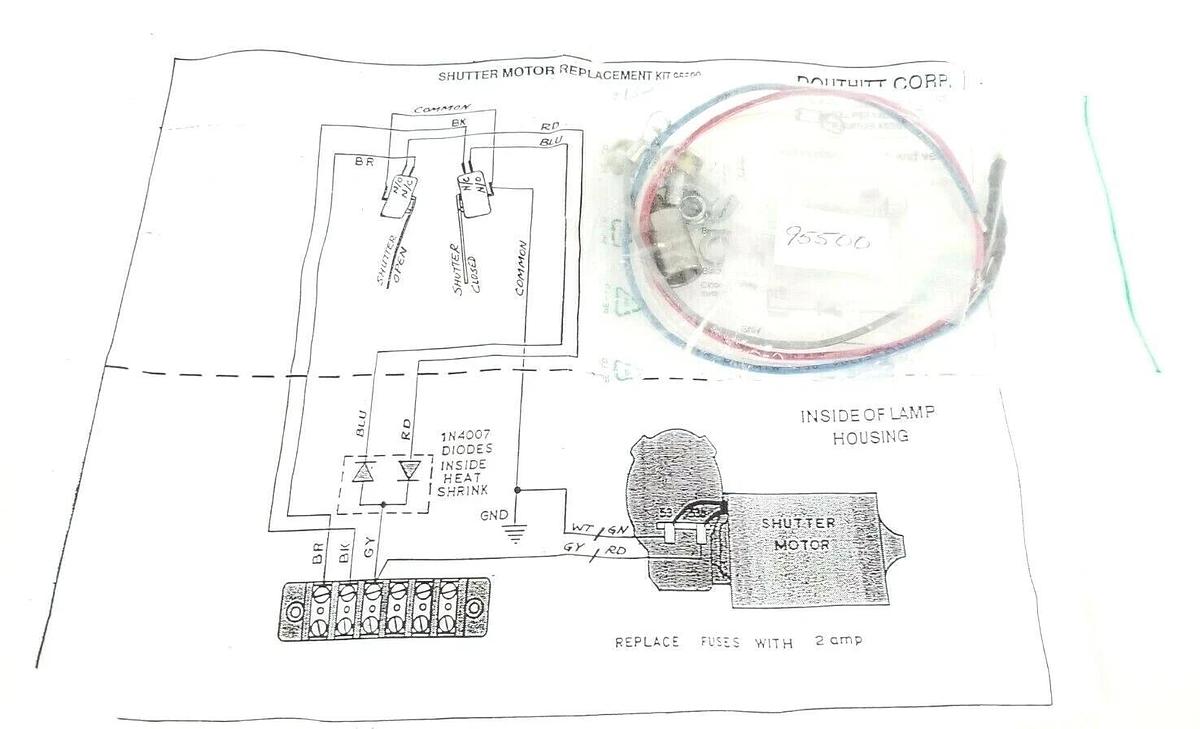 SHUTTER MOTOR REPLACEMENT KIT
DOUTHITT CORP.
COMMON
BK
RD
BLU
BR
N/O
N/C
N/C
N/O
SHUTTER
OPEN
SHUTTER
CLOSED
COMMON
95500
BLU
RD
1N4007
DIODES
INSIDE
HEAT
SHRINK
INSIDE OF LAMP
HOUSING
GND
WT / GN
GY / RD
53
SHUTTER
MOTOR
BR
BK
GY
REPLACE FUSES WITH 2 amp